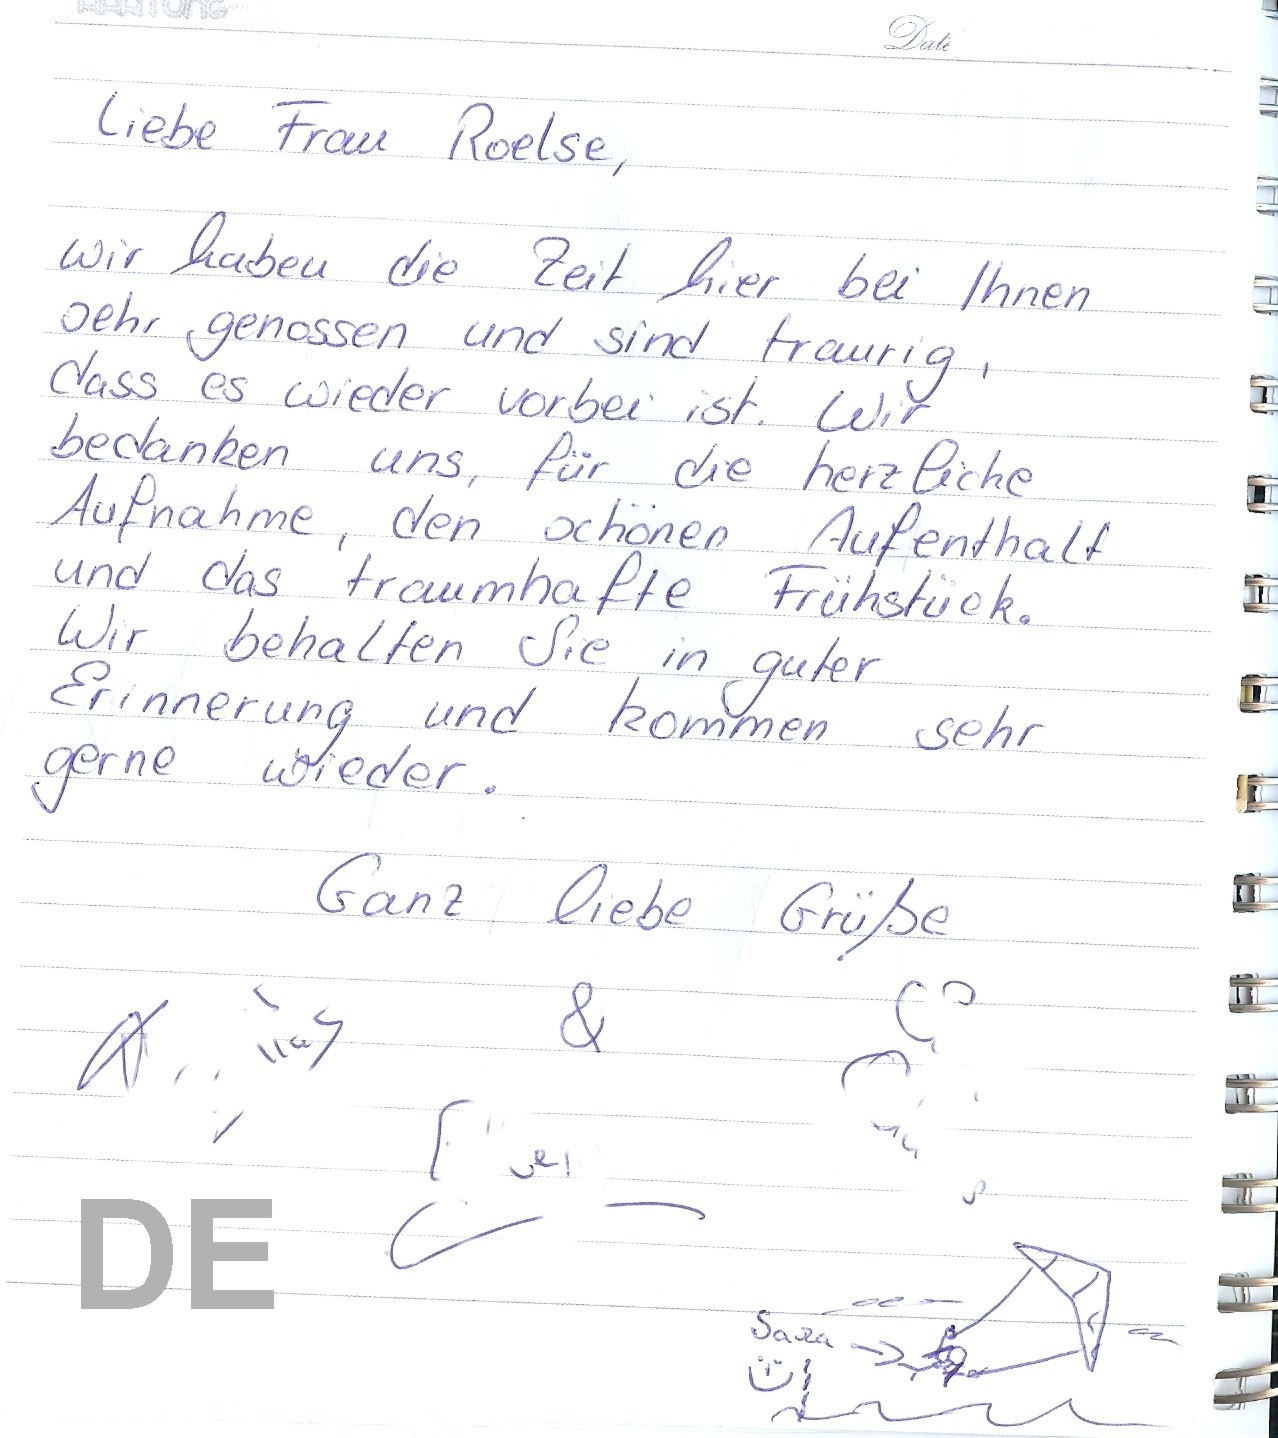 Date
Liebe Frau Roelse,
wir haben die Zeit hier bei Ihnen
sehr genossen und sind traurig,
dass es wieder vorbei ist. Wir
bedanken uns, für die herzliche
Aufnahme, den schönen Aufenthalt
und das traumhafte Frühstück.
Wir behalten Sie in guter
Erinnerung und kommen sehr
gerne wieder.
Ganz liebe Grüße
&
DE